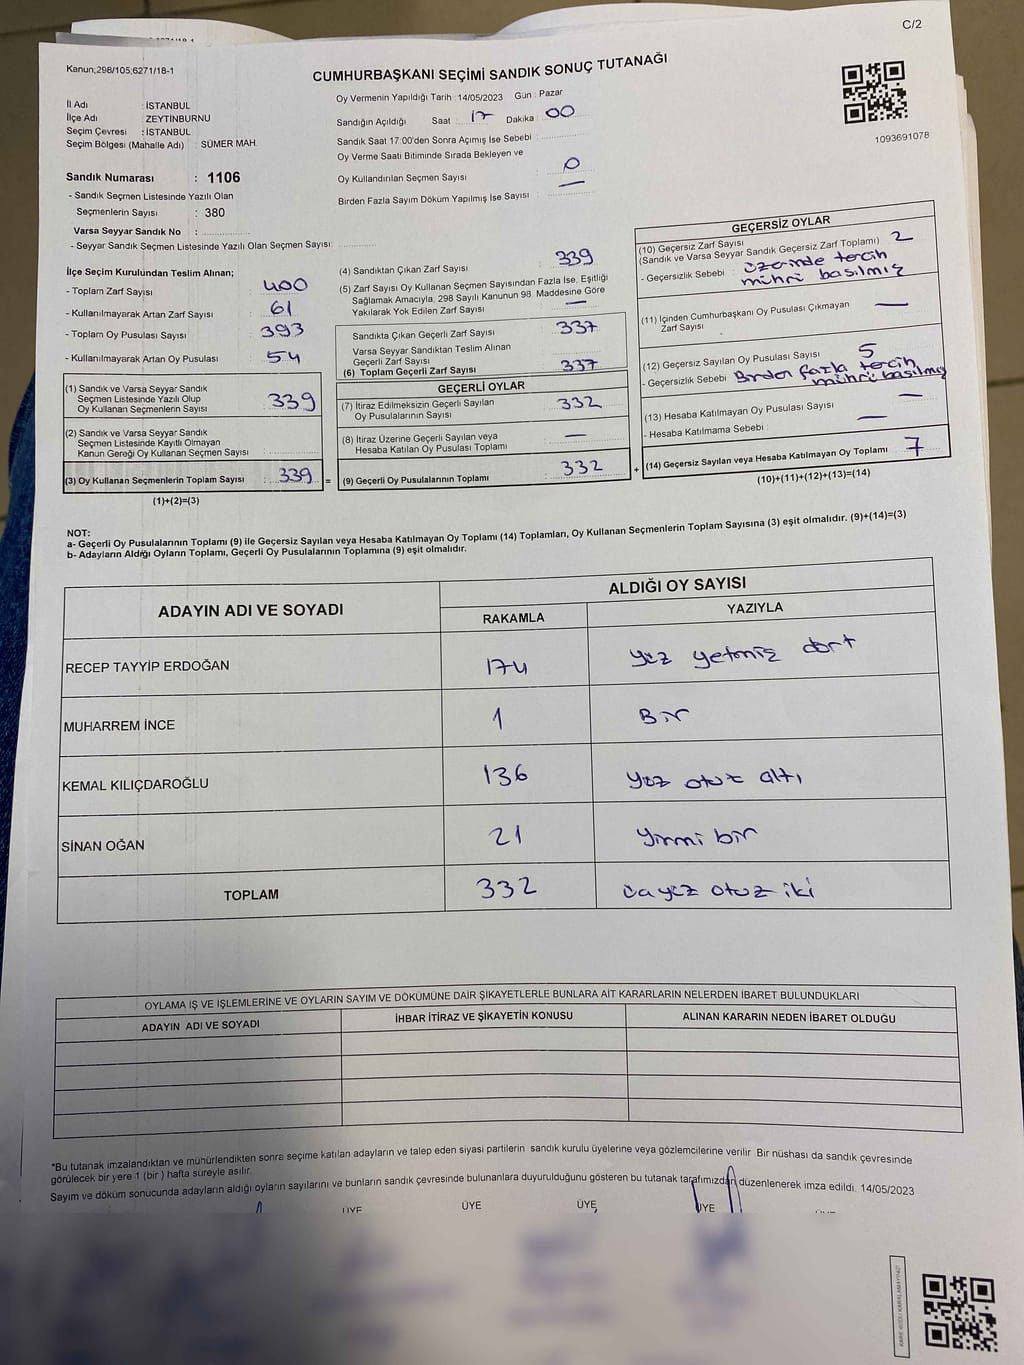 C/2
Kanun;298/105;6271/18-1
CUMHURBAŞKANI SEÇİMİ SANDIK SONUÇ TUTANAĞI
1093691078
İl Adı : İSTANBUL
İlçe Adı : ZEYTİNBURNU
Seçim Çevresi : İSTANBUL
Seçim Bölgesi (Mahalle Adı) : SÜMER MAH.
Oy Vermenin Yapıldığı Tarih : 14/05/2023 Gün : Pazar
Sandığın Açıldığı Saat : 17 Dakika : 00
Sandık Saat 17:00'den Sonra Açımış İse Sebebi :
Oy Verme Saati Bitiminde Sırada Bekleyen ve
Oy Kullandırılan Seçmen Sayısı : 0
Birden Fazla Sayım Döküm Yapılmış İse Sayısı : —
Sandık Numarası : 1106
- Sandık Seçmen Listesinde Yazılı Olan
Seçmenlerin Sayısı : 380
Varsa Seyyar Sandık No :
- Seyyar Sandık Seçmen Listesinde Yazılı Olan Seçmen Sayısı:
İlçe Seçim Kurulundan Teslim Alınan;
- Toplam Zarf Sayısı : 400
- Kullanılmayarak Artan Zarf Sayısı : 61
- Toplam Oy Pusulası Sayısı : 393
- Kullanılmayarak Artan Oy Pusulası : 54
(1) Sandık ve Varsa Seyyar Sandık
Seçmen Listesinde Yazılı Olup
Oy Kullanan Seçmenlerin Sayısı : 339
(2) Sandık ve Varsa Seyyar Sandık
Seçmen Listesinde Kayıtlı Olmayan
Kanun Gereği Oy Kullanan Seçmen Sayısı :
(3) Oy Kullanan Seçmenlerin Toplam Sayısı : 339 =
(1)+(2)=(3)
(4) Sandıktan Çıkan Zarf Sayısı : 339
(5) Zarf Sayısı Oy Kullanan Seçmen Sayısından Fazla İse, Eşitliği
Sağlamak Amacıyla, 298 Sayılı Kanunun 98. Maddesine Göre
Yakılarak Yok Edilen Zarf Sayısı : —
Sandıkta Çıkan Geçerli Zarf Sayısı : 337
Varsa Seyyar Sandıktan Teslim Alınan
Geçerli Zarf Sayısı :
(6) Toplam Geçerli Zarf Sayısı : 337
GEÇERLİ OYLAR
(7) İtiraz Edilmeksizin Geçerli Sayılan
Oy Pusulalarının Sayısı : 332
(8) İtiraz Üzerine Geçerli Sayılan veya
Hesaba Katılan Oy Pusulası Toplamı : —
(9) Geçerli Oy Pusulalarının Toplamı : 332 +
GEÇERSİZ OYLAR
(10) Geçersiz Zarf Sayısı
(Sandık ve Varsa Seyyar Sandık Geçersiz Zarf Toplamı) : 2
- Geçersizlik Sebebi : üzerinde tercih
mühri basılmış
(11) İçinden Cumhurbaşkanı Oy Pusulası Çıkmayan
Zarf Sayısı : —
(12) Geçersiz Sayılan Oy Pusulası Sayısı : 5
- Geçersizlik Sebebi : Birden fazla tercih
mühri basılmış
(13) Hesaba Katılmayan Oy Pusulası Sayısı : —
- Hesaba Katılmama Sebebi : —
(14) Geçersiz Sayılan veya Hesaba Katılmayan Oy Toplamı : 7
(10)+(11)+(12)+(13)=(14)
NOT:
a- Geçerli Oy Pusulalarının Toplamı (9) ile Geçersiz Sayılan veya Hesaba Katılmayan Oy Toplamı (14) Toplamları, Oy Kullanan Seçmenlerin Toplam Sayısına (3) eşit olmalıdır. (9)+(14)=(3)
b- Adayların Aldığı Oyların Toplamı, Geçerli Oy Pusulalarının Toplamına (9) eşit olmalıdır.
ADAYIN ADI VE SOYADI
ALDIĞI OY SAYISI
RAKAMLA YAZIYLA
RECEP TAYYİP ERDOĞAN 174 yüz yetmiş dört
MUHARREM İNCE 1 Bir
KEMAL KILIÇDAROĞLU 136 yüz otuz altı
SİNAN OĞAN 21 yirmi bir
TOPLAM 332 üçyüz otuz iki
OYLAMA İŞ VE İŞLEMLERİNE VE OYLARIN SAYIM VE DÖKÜMÜNE DAİR ŞİKAYETLERLE BUNLARA AİT KARARLARIN NELERDEN İBARET BULUNDUKLARI
ADAYIN ADI VE SOYADI İHBAR İTİRAZ VE ŞİKAYETİN KONUSU ALINAN KARARIN NEDEN İBARET OLDUĞU
*Bu tutanak imzalandıktan ve mühürlendikten sonra seçime katılan adayların ve talep eden siyasi partilerin sandık kurulu üyelerine veya gözlemcilerine verilir. Bir nüshası da sandık çevresinde
görülecek bir yere 1 (bir) hafta süreyle asılır.
Sayım ve döküm sonucunda adayların aldığı oyların sayılarını ve bunların sandık çevresinde bulunanlara duyurulduğunu gösteren bu tutanak tarafımızdan düzenlenerek imza edildi. 14/05/2023
ÜYE ÜYE ÜYE ÜYE